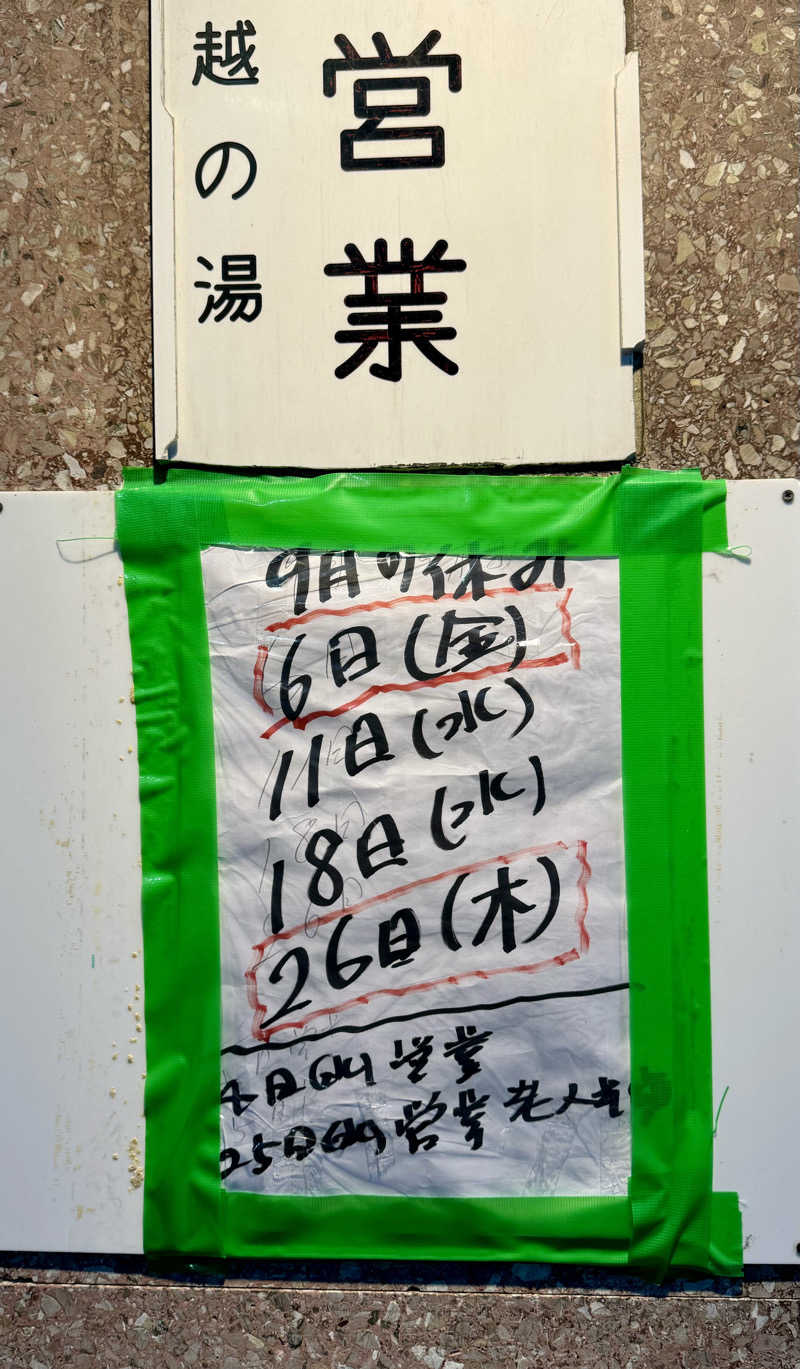 営業
越の湯
9月の休み
6日(金)
11日(水)
18日(水)
26日(木)
4日(水) 営業
25日(水) 営業 老人